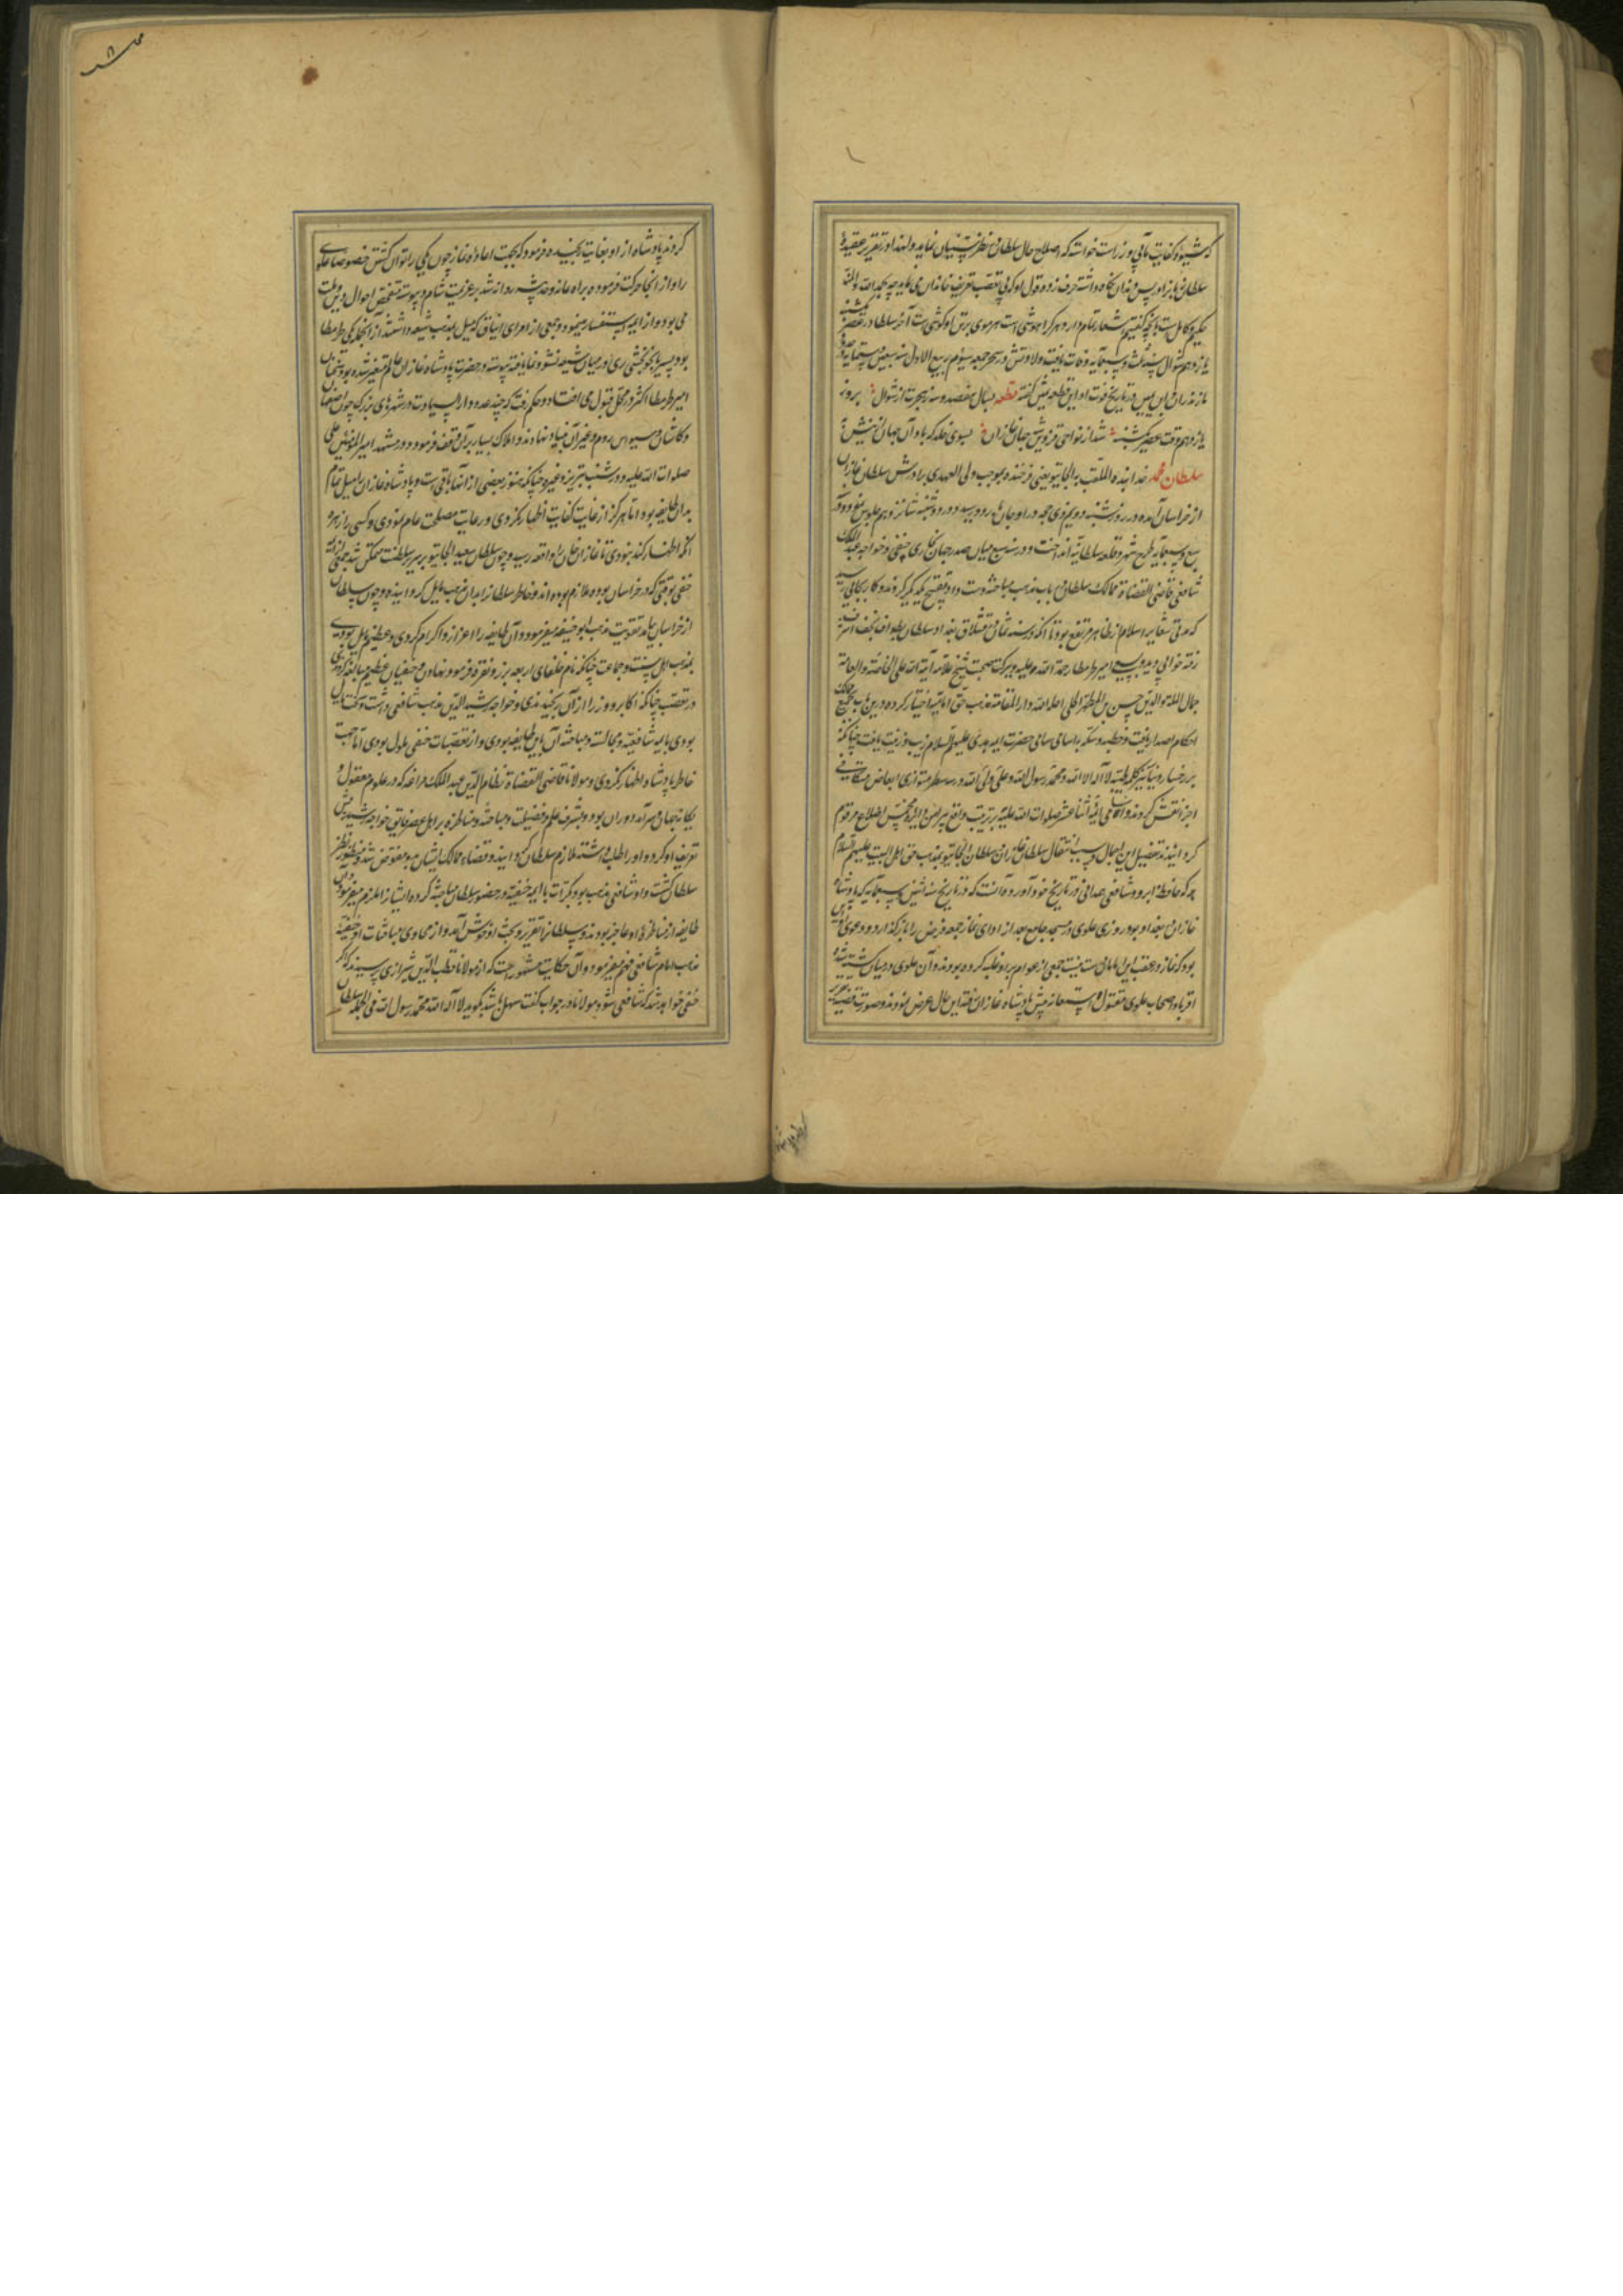 که شیوه کفایت مآبی وزراست خواسته که اصلاح حال سلطان بنظر پیشینیان نماید و لهذا در تقریر عقیدهٔ
سلطان باز او پس و خاندان نگاه داشته حرف زده و قول او که فی تعصب تعریف خاندان می نماید چه بحمد الله والمنه
حکیم کامل است بانچه گفتیم اشعار تمام دارد و هر که را هوشی است هر موی بر تن او گوشی است آخر سلطان در عصر یکشنبه
یازدهم شوال سنه ثلث و سبعمایه وفات یافت ولادتش در سحر جمعه سیوم ربیع الاول سنه سبعین و ستمایه بوده
مازندران و ابن یمین در تاریخ فوت او این قطعه گفته قطعه بسال هفصد و سه ز هجرت از شوال بروز
یازدهم وقت عصر یکشنبه شد از نواحی قزوین شه جهان غازان بسوی خلد که باد آن جهان ازینش به
سلطان محمد خدابنده الملقب به الجایتو یعنی فرخنده بموجب ولی العهدی برادرش سلطان غازان
از خراسان آمده در روز شنبه دویم ذی حجه در اوجان باردو رسید و در دوشنبه شانزدهم جلوس نمود و در
سبع و سبعمایه طرح شهر و قلعه سلطانیه انداخت و در سنه سبع میان صدر جهان بخاری حنفی و خواجه عبدالملک
شافعی قاضی القضاة ممالک سلطان در باب مذهب مباحثه دست داد و تقبیح یکدیگر کردند و کار بجایی رسید
که مدتی شعایر اسلام از مظاهر مرتفع بود تا آنکه در سنه ثمان در قشلاق بغداد سلطان بطواف نجف اشرف
رفته خوابی دید و بسعی امیر طرمطار رحمة الله علیه و ببرکت صحبت شیخ علامه آیة الله علی الخاصة و العامة
جمال الملة والدین حسن بن المطهر الحلی احله الله دار المقامة مذهب حق امامیه اختیار کرده درین باب بجمیع ممالک
احکام اصدار یافت و خطبه و سکه باسامی سامی حضرات ائمه هدی علیهم السلام زیب و زینت یافت چنانکه
بر رخسار دنانیر کلمه طیبه لا اله الا الله و محمد رسول الله و علی ولی الله در سه سطر متوازی الابعاض متکافی
اجزا نقش کردند و اسامی ائمه اثنا عشر صلوات الله علیهم بترتیب واقع پیرامن دایره مخمس اضلاع مرقوم
گردانیدند تفصیل این اجمال و سبب انتقال سلطان غازان و سلطان الجایتو بمذهب حق اهل البیت علیهم السلام
چه که حافظ ابرو شافعی همدانی در تاریخ خود آورده آنست که در تاریخ سنه سبعمایه که پادشاه
غازان در بغداد بود روزی علوی در مسجد جامع بعد از ادای نماز جمعه فرض را باز گذارد و دعوی او این
بود که نماز در عقب این امام درست نیست جمعی از عوام برو غلبه کرده بودند و آن علوی در میان کشته شده
اقربا و اصحاب علوی مقتول باستغاثه پیش پادشاه غازان رفته این حال عرض نمودند و صورت قضیه تقریر
کردند پادشاه از او بغایت رنجیده فرمود که بجهت اعاده نماز چون یکی را توان کشتن خصوصا علوی
را و از آنجا حرکت فرموده براه عانه و حدیثه روانه شد بر عزیمت شام و پیوسته متفحص احوال دین و ملت
می بود و از ائمه استفسار مینمود و جمعی از امرای ایناق که میل بمذهب شیعه داشتند از آنجمله یکی طرمطار
بود پسر بایجو بخشی ری در میان شیعه نشو و نما یافته پیوسته در حضرت پادشاه غازان
امیر طرمطار اکثر در محل قبول می افتاد و حکم رفت که چند عدد دار السیادت در شهرهای بزرگ چون اصفهان
و کاشان و سیواس روم و غیر آن بنیاد نهادند و املاک بسیار بر آن وقف فرمود و در مشهد امیر المؤمنین علی
صلوات الله علیه و در شنب تبریز و غیره چنانکه هنوز بعضی از آنها باقی است و پادشاه غازان را میل تمام
بدان طایفه بود اما هرگز از غایت کفایت اظهار نکردی و رعایت مصلحت عام نمودی و کسی را زهره
آنکه اظهار کند نبودی تا غازان خان را واقعه رسید و چون سلطان سعید الجایتو بر سریر سلطنت متمکن شد جمعی ائمه
حنفی بوقتی که در خراسان بوده ملازم بوده اند و خاطر سلطان را بدان مذهب مایل گردانیده و چون سلطان
از خراسان بیامد تقویت مذهب ابو حنیفه میفرمود و آن طایفه را اعزاز و اکرام کردی و عظیم مایل بودی
بمذهب اهل سنت و جماعت چنانکه نام خلفای اربعه بر زر و نقره فرمود نهادن و حنفیان عظیم مبالغه کردندی
در تعصب چنانکه اکابر و وزرا از آن رنجیدندی و خواجه رشید الدین مذهب شافعی داشت
بودی با ائمه شافعیه و مجالسه و مباحثه آن با این طایفه بودی و از تعصبات حنفی ملول بودی اما جهت
خاطر پادشاه اظهار نکردی و مولانا قاضی القضاة نظام الدین عبد الملک مراغه که در علوم معقول و
یگانه جهان و سرآمد دوران بود و بشرف علم و فضیلت و مباحثه و مناظره بر اهل عصر فایق خواجه رشید پیش
تعریف او کرده و او را طلب داشته ملازم سلطان گردانید و قضاء ممالک ایشان بدو مفوض شد و منظور نظر
سلطان گشت و او شافعی مذهب بود و بکرات با ائمه حنفیه در حضور سلطان مباحثه کرده ایشانرا ملزم میفرمود و آن
طایفه از مناظره او عاجز بودند و سلطان را تقریر و بحث او خوش آمد و از فحاوی مباحثات او حقیقت
مذهب امام شافعی فهم میفرمود و آن حکایت مشهور است که از مولانا قطب الدین شیرازی پرسیدند که اگر
حنفی خواهد شد که شافعی شود مولانا در جواب گفت سهل باشد بگوید لا اله الا الله محمد رسول الله فی الجمله سلطان